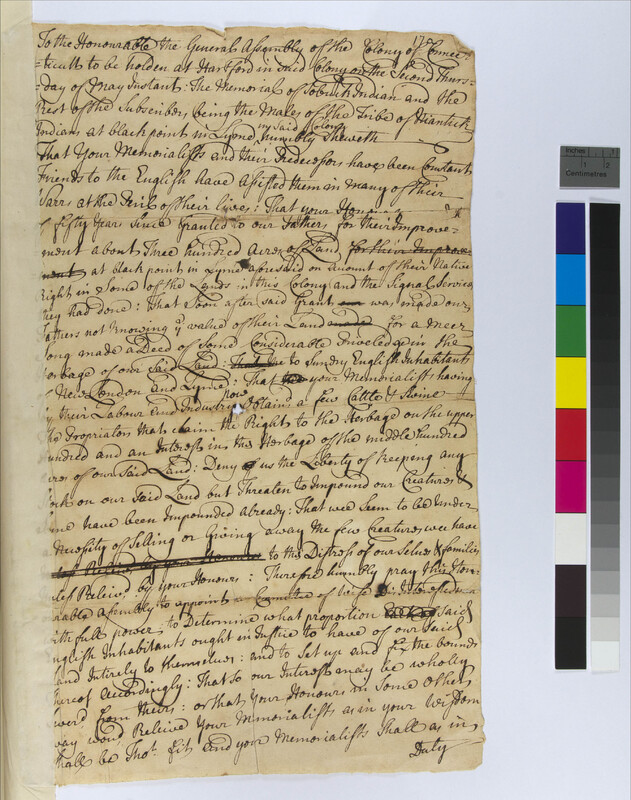 To the Honourable the General Assembly of the Colony of Connec=
=ticutt to be holden at Hartford in said Colony on the Second Thurs=
=day of May Instant: The Memorial of Indian and the
Rest of the Subscribers being the Males of the Tribe of Niantick
Indians at blackpoint in Lyme in said Colony humbly Sheweth
That Your Memorialists and their Predecessors have been Constant
Friends to the English have assisted them in many of their
Warrs at the Risk of their lives: That your Honours
fifty Years Since granted to our Fathers for their Improve=
ment about Three hundred Acres of Land for their Improve
ment at blackpoint in Lyme aforesaid on Amount of their Native
Right in Some of the Lands in this Colony and the Signal Services
they had done: That Soon after said Grant was made our
Fathers not knowing ye value of their Land made for a meer
Song made a Deed of Some Considerable in the
herbage of our Said Land: to Sundry English Inhabitants
of New London and Lyme: That your Memorialists having
by their Labour and Industry now Obtaind a few Cattle & Swine
the Propriators that claim the Right to the Herbage on the upper
hundred and an Interest in the Herbage of the middle hundred
acres of our Said Land: Deny us the Liberty of keeping any
Stock on our Said Land but Threaten to Impound our Creatures &
some have been Impounded already: That wee Seem to be under
Necessity of Selling or Giving away the few Creatures wee have
to the Distress of our Selves & families
unless Releived by your Honours: Therefore humbly pray this Honou
rable assembly to appoint a Committee of
with full power to Determine what proportion said
English Inhabitants ought in Justice to have of our said
Land Intirely to themselves: and to Set up and fix the bounds
thereof Accordingly: That so our Interest may be wholy
severd from theirs: or that Your Honours in Some other
way woud Releive Your Memorialists as in your Wisdom
shall be Thot. fit and your Memorialists shall as in
Duty
Inches
1
2
Centimetres